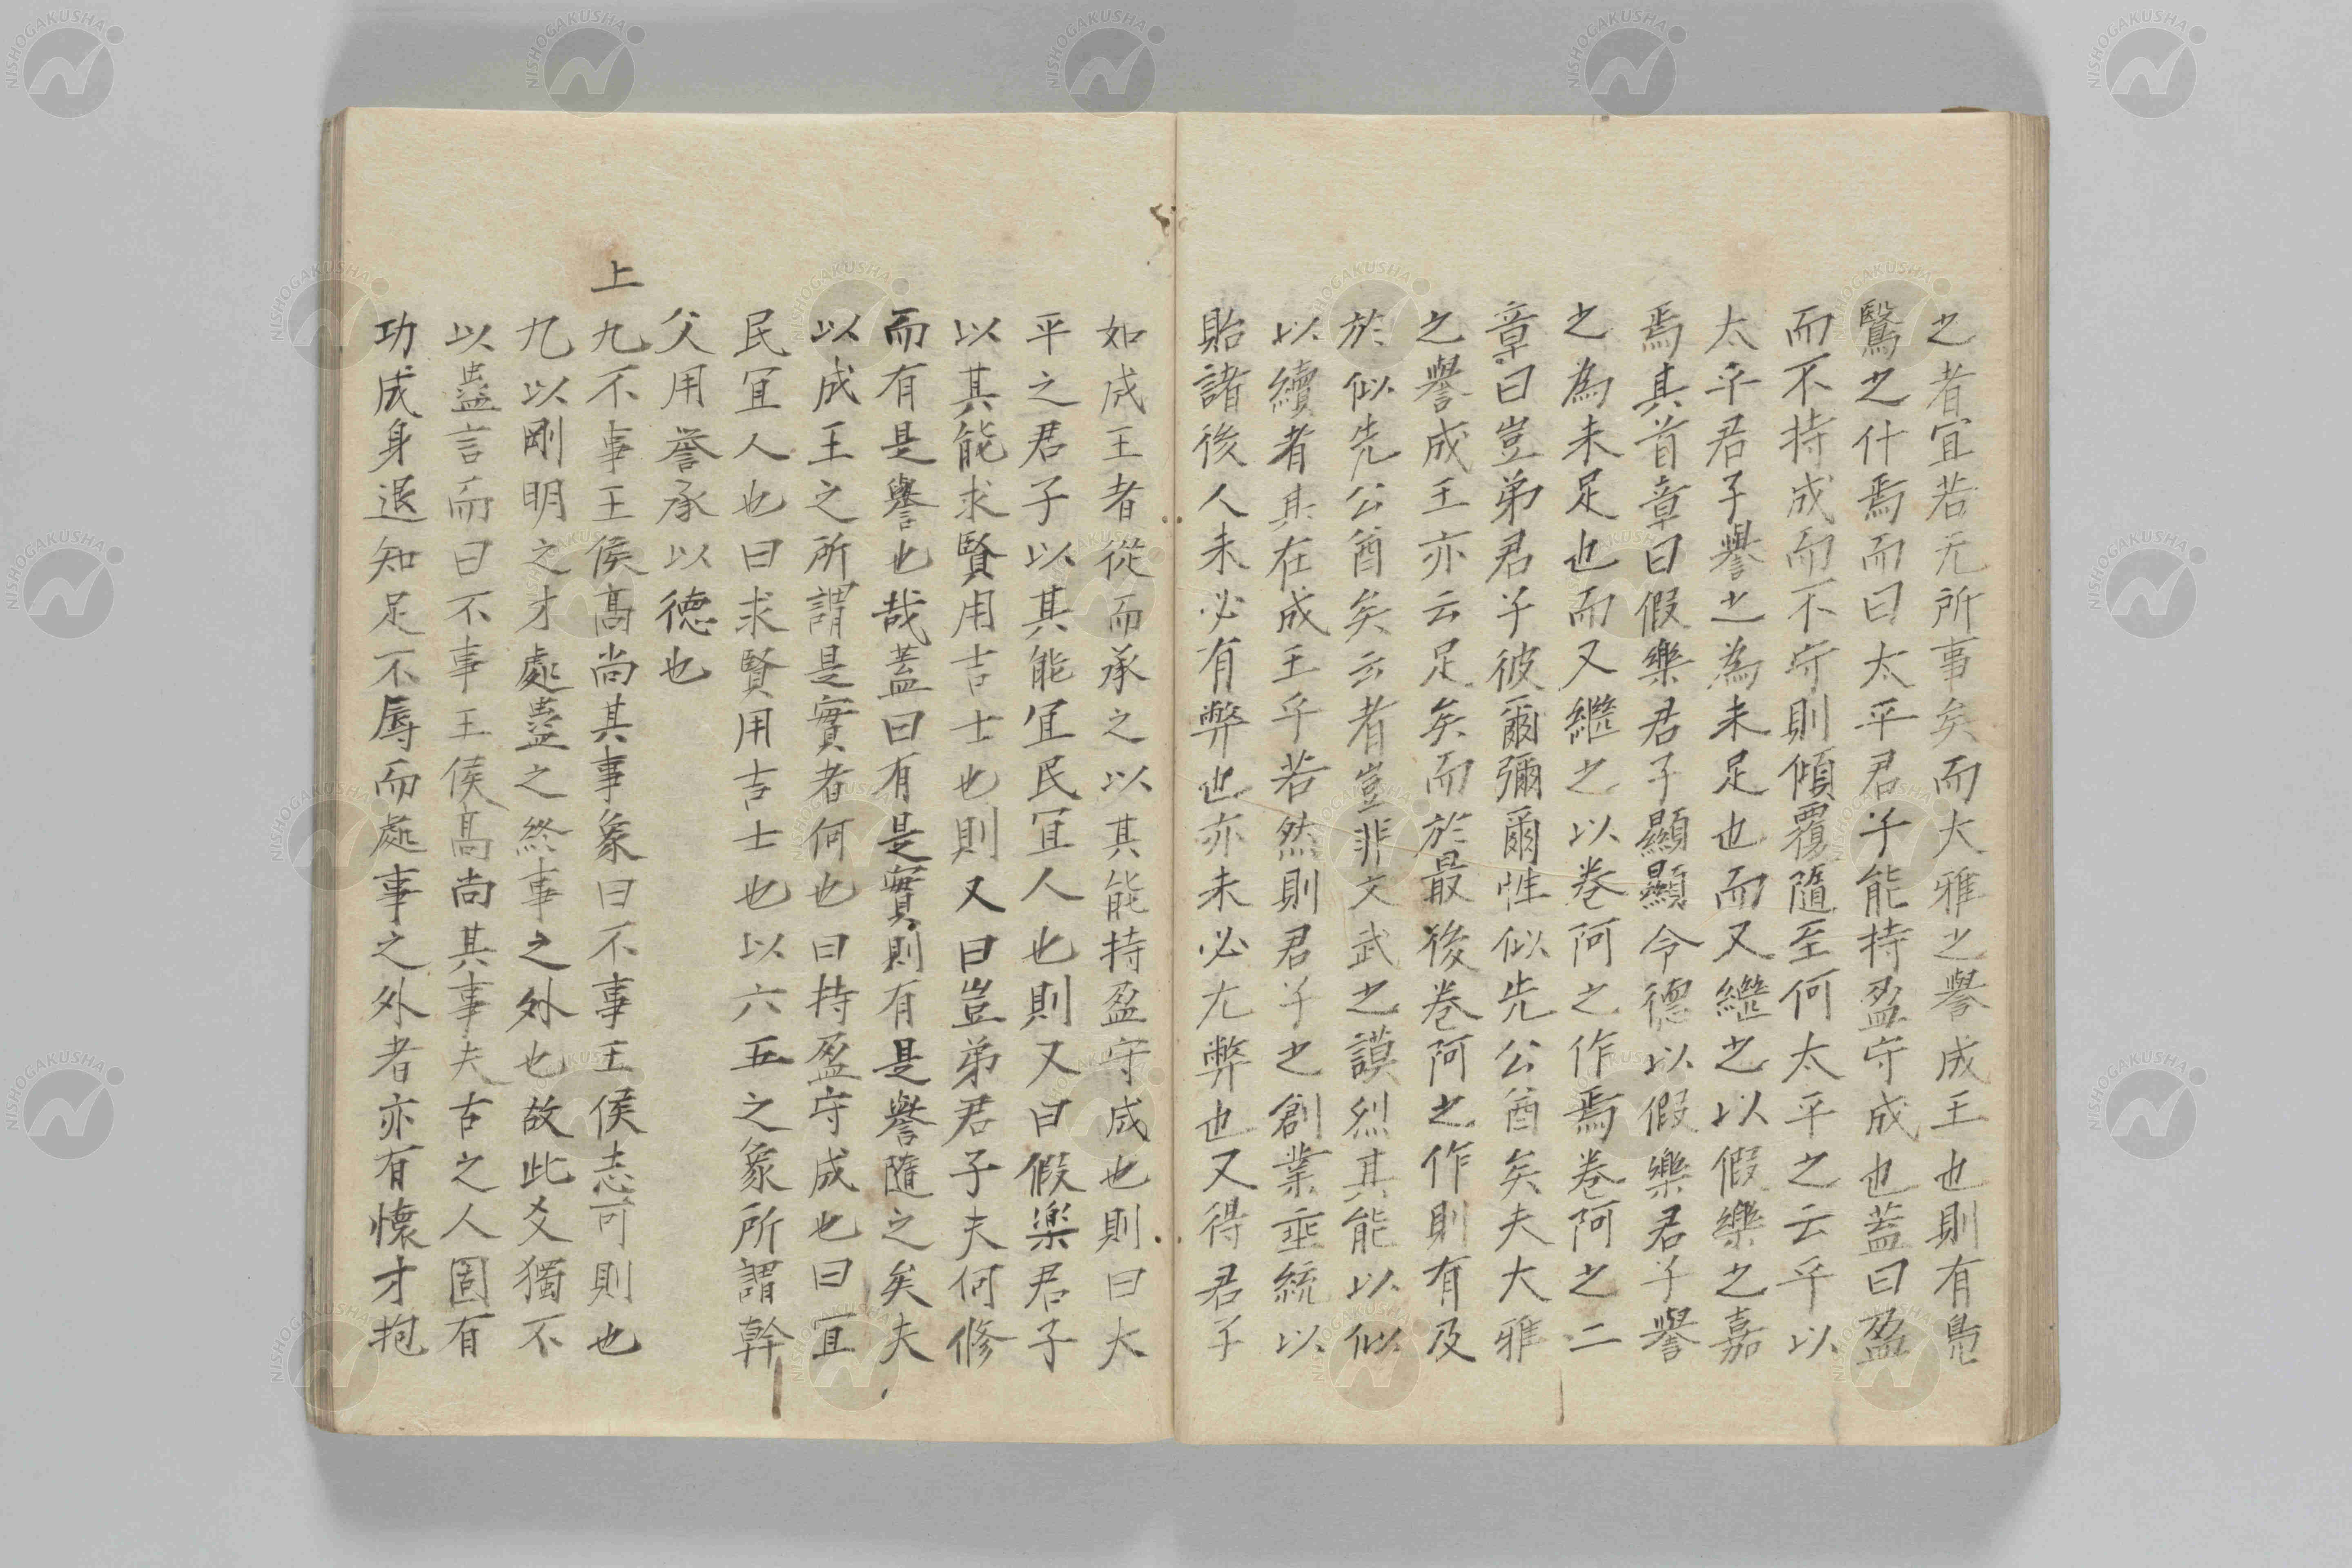 之者宜若无所事矣而大雅之譽成王也則有鳧
鷖之什焉而曰太平君子能持盈守成也蓋曰盈
而不持成而不守則傾覆隨至何太平之云乎以
太平君子譽之為未足也而又繼之以假樂之嘉
焉其首章曰假樂君子顯顯令德以假樂君子譽
之為未足也而又繼之以卷阿之作焉卷阿之二
章曰豈弟君子彼爾彌爾性似先公酋矣夫大雅
之譽成王亦云足矣而於最後卷阿之作則有及
於似先公酋矣云者豈非文武之謨烈其能以似
以續者其在成王乎若然則君子之創業垂統以
貽諸後人未必有弊也亦未必尢弊也又得君子
如成王者從而承之以其能持盈守成也則曰大
平之君子以其能宜民宜人也則又曰假楽君子
以其能求賢用吉士也則又曰豈弟君子夫何修
而有是譽也哉蓋曰有是實則有是譽隨之矣夫
以成王之所謂是實者何也曰持盈守成也曰宜
民宜人也曰求賢用吉士也以六五之象所謂幹
父用誉承以德也
上九不事王侯髙尚其事象曰不事王侯志可則也
九以剛明之才處蠱之終事之外也故此爻獨不
以蠱言而曰不事王侯髙尚其事夫古之人固有
功成身退知足不辱而處事之外者亦有懷才抱
NISHOGAKUSHA